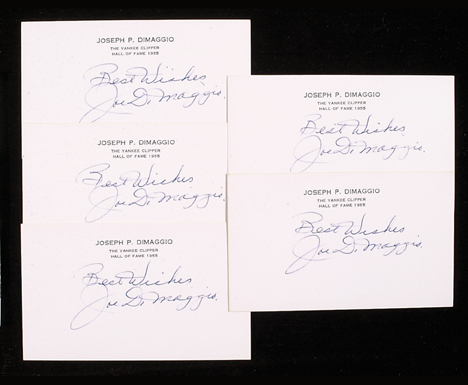 JOSEPH P. DIMAGGIO
THE YANKEE CLIPPER
HALL OF FAME 1955
Best Wishes
Joe DiMaggio.
JOSEPH P. DIMAGGIO
THE YANKEE CLIPPER
HALL OF FAME 1955
Best Wishes
Joe DiMaggio.
JOSEPH P. DIMAGGIO
THE YANKEE CLIPPER
HALL OF FAME 1955
Best Wishes
Joe DiMaggio.
JOSEPH P. DIMAGGIO
THE YANKEE CLIPPER
HALL OF FAME 1955
Best Wishes
Joe DiMaggio.
JOSEPH P. DIMAGGIO
THE YANKEE CLIPPER
HALL OF FAME 1955
Best Wishes
Joe DiMaggio.